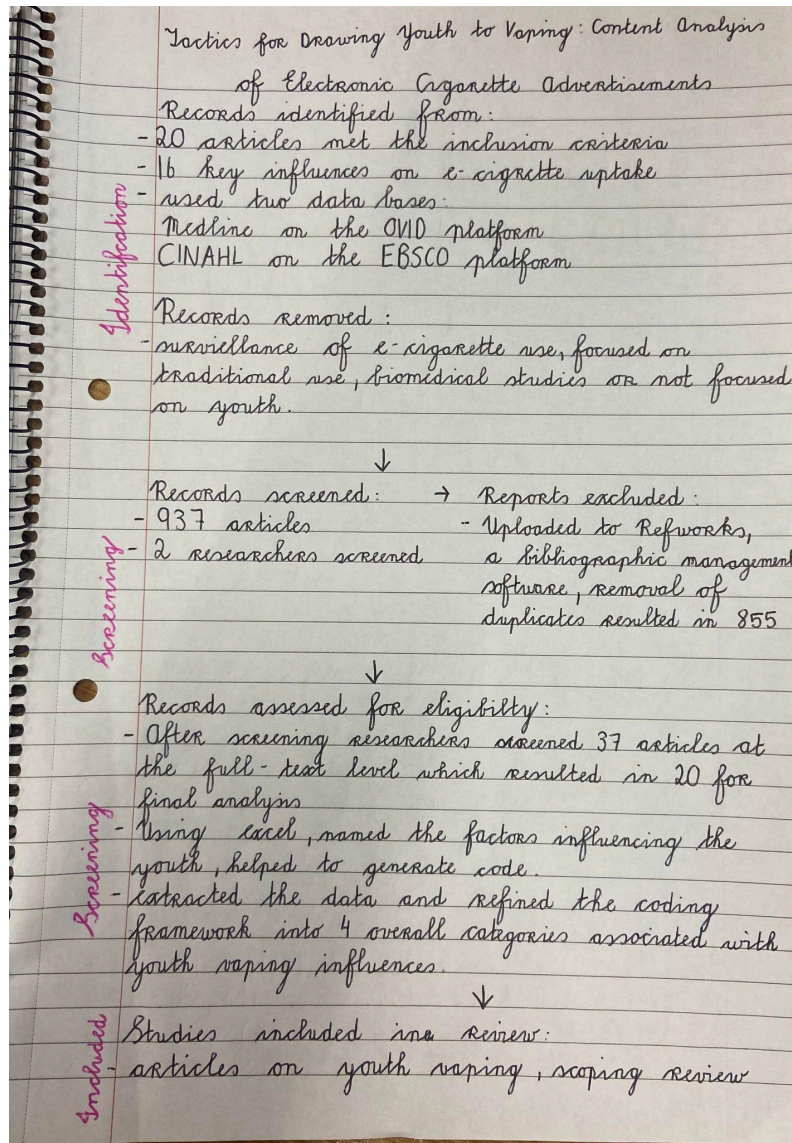 Tactics for Drawing Youth to Vaping: Content Analysis
of Electronic Cigarette Advertisements
Records identified from:
- 20 articles met the inclusion criteria
- 16 key influences on e-cigrette uptake
- used two data bases:
Medline on the OVID platform
CINAHL on the EBSCO platform
Identification
Records removed:
- surviellance of e-cigarette use, focused on
traditional use, biomedical studies or not focused
on youth.
↓
Records screened:
- 937 articles
- 2 researchers screened
→ Reports excluded:
- Uploaded to Refworks,
a bibliographic management
software, removal of
duplicates resulted in 855
Screening
↓
Records assessed for eligibilty:
- After screening researchers screened 37 articles at
the full-text level which resulted in 20 for
final analysis
- Using excel, named the factors influencing the
youth, helped to generate code.
- extracted the data and refined the coding
framework into 4 overall categories associated with
youth vaping influences.
Screening
↓
Studies included in Review:
- articles on youth vaping, scoping review
Included